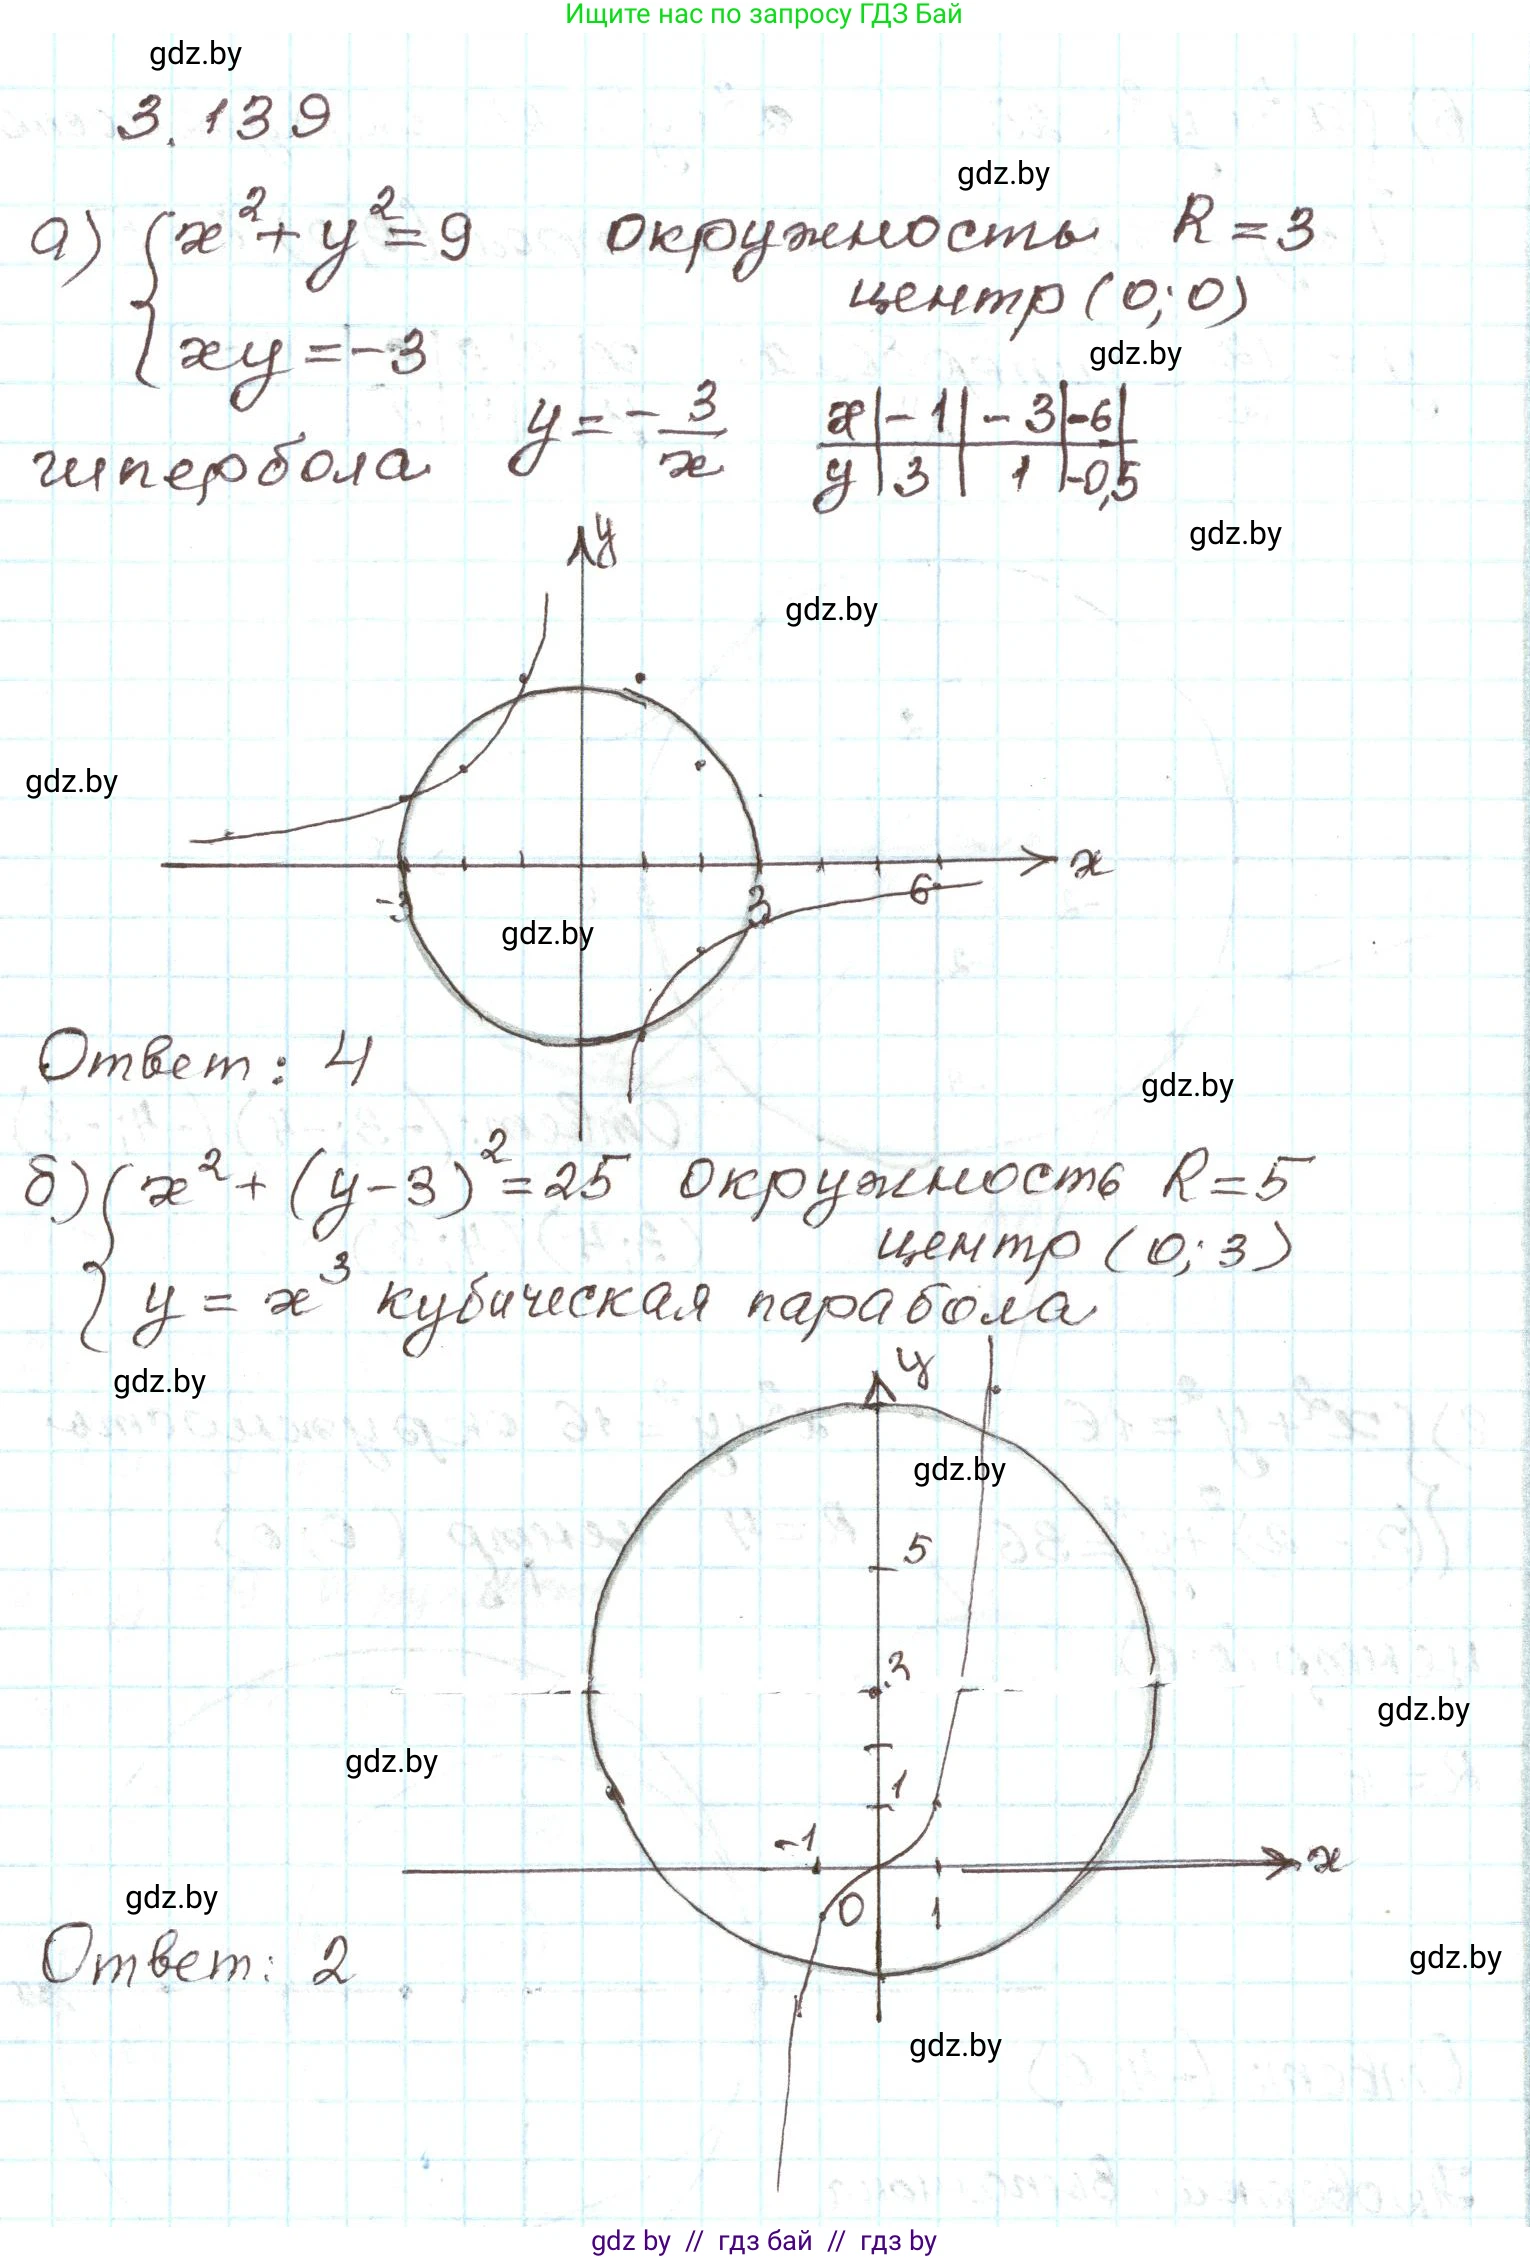 Ищите нас по запросу ГДЗ Бай
gdz.by
3.139
gdz.by
а) { x² + y² = 9 окружность R = 3
центр (0; 0)
xy = -3
gdz.by
гипербола y = - 3/x
x | -1 | -3 | -6 |
y | 3 | 1 | -0,5
gdz.by
y
gdz.by
gdz.by
x
-3 3 6
gdz.by
Ответ: 4
gdz.by
б) { x² + (y-3)² = 25 окружность R = 5
центр (0; 3)
y = x³ кубическая парабола
y
gdz.by
gdz.by
5
3
gdz.by
gdz.by
1
-1
x
gdz.by
0 1
Ответ: 2
gdz.by
gdz.by
gdz by // гдз бай // гдз by